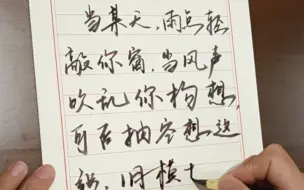 当某天,雨点轻
敲你窗,当风声
吹乱你构想,
可否抽空想这
张,旧模